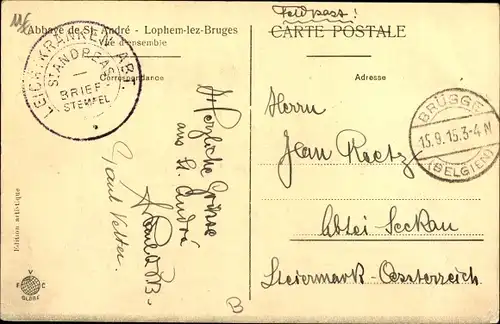 Abbaye de St. André - Lophem-lez-Bruges
Vue d'ensemble
Correspondance
LEICHTKRANKEN ABT.
ST. ANDREAS
BRIEF-
STEMPEL
Herzliche Grüsse
aus St. André
Paul Vetter.
Edition artistique
V
F C
GLOBE
B
Feldpost!
CARTE POSTALE
Adresse
BRÜGGE
15.9.15.3-4N
(BELGIEN)
Herrn
Jean Reetz
Abtei Seckau
Steiermark - Oesterreich